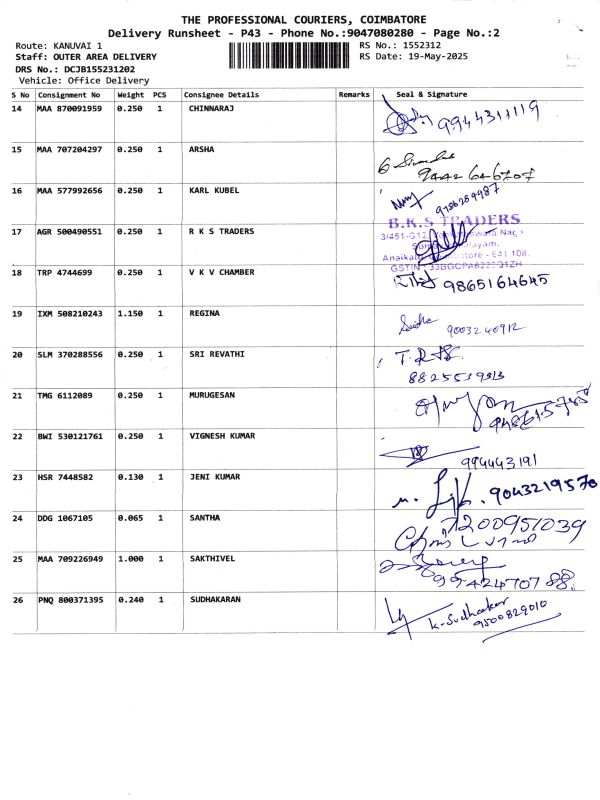 THE PROFESSIONAL COURIERS, COIMBATORE
Delivery Runsheet - P43 - Phone No.:9047080280 - Page No.:2
Route: KANUVAI 1 RS No.: 1552312
Staff: OUTER AREA DELIVERY RS Date: 19-May-2025
DRS No.: DCJB155231202
Vehicle: Office Delivery
S No Consignment No Weight PCS Consignee Details Remarks Seal & Signature
14 MAA 870091959 0.250 1 CHINNARAJ 9944311119
15 MAA 707204297 0.250 1 ARSHA
9442646207
16 MAA 577992656 0.250 1 KARL KUBEL
B.K.S TRADERS
17 AGR 500490551 0.250 1 R K S TRADERS
18 TRP 4744699 0.250 1 V K V CHAMBER 9865164645
19 IXM 508210243 1.150 1 REGINA
Sudha 9003240912
20 SLM 370288556 0.250 1 SRI REVATHI
21 TMG 6112089 0.250 1 MURUGESAN
22 BWI 530121761 0.250 1 VIGNESH KUMAR
994443191
23 HSR 7448582 0.130 1 JENI KUMAR 9043219570
24 DDG 1067105 0.065 1 SANTHA 7200951039
25 MAA 709226949 1.000 1 SAKTHIVEL
26 PNQ 800371395 0.240 1 SUDHAKARAN
K-Sudhakar
9500829010